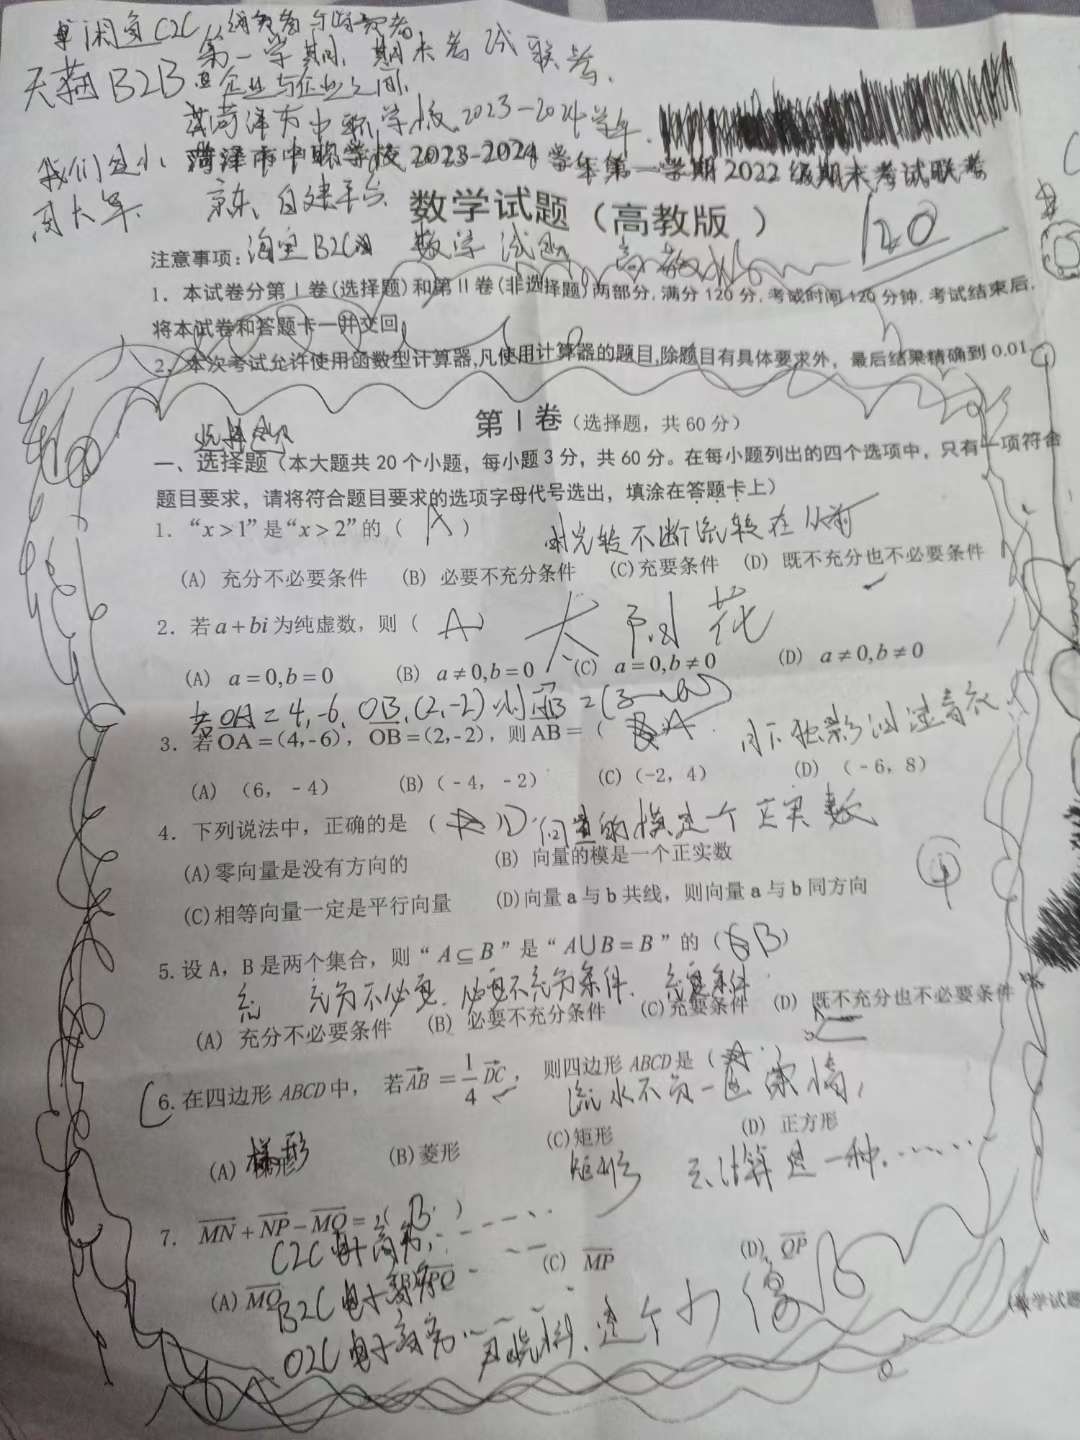 闲鱼C2C
第一学期 期末考试联考
天猫B2B 企业与企业之间
菏泽市中职学校2023-2024学年
我们是小
菏泽市中职学校2023-2024学年第一学期2022级期末考试联考
京东、自建平台
数学试题（高教版）
120
注意事项：
淘宝B2C 数学试题
1. 本试卷分第Ⅰ卷(选择题)和第Ⅱ卷(非选择题)两部分,满分120分,考试时间120分钟,考试结束后,
将本试卷和答题卡一并交回.
2、本次考试允许使用函数型计算器,凡使用计算器的题目,除题目有具体要求外，最后结果精确到0.01.
第Ⅰ卷（选择题，共60分）
选择题
一、选择题（本大题共20个小题，每小题3分，共60分。在每小题列出的四个选项中，只有一项符合
题目要求，请将符合题目要求的选项字母代号选出，填涂在答题卡上）
1. “x＞1”是“x＞2”的（ A ）
时光转不断流转在从前
(A) 充分不必要条件 (B) 必要不充分条件 (C)充要条件 (D) 既不充分也不必要条件
2. 若a+bi为纯虚数，则（ A ）
太阳花
(A) a=0,b=0 (B) a≠0,b=0 (C) a=0,b≠0 (D) a≠0,b≠0
若OA=4,-6, OB,(2,-2)则AB=(
3. 若OA=(4,-6)，OB=(2,-2)，则AB=（ A
(A) （6，-4） (B)（-4，-2） (C)（-2，4） (D) （-6，8）
4. 下列说法中，正确的是（ ）D 向量的模是一个正实数
(A)零向量是没有方向的 (B) 向量的模是一个正实数
(C)相等向量一定是平行向量 (D)向量a与b共线，则向量a与b同方向
5. 设A，B是两个集合，则“A⊆B”是“A∪B=B”的（ B ）
充分不必要 必要不充分条件 充要条件
(A) 充分不必要条件 (B) 必要不充分条件 (C)充要条件 (D) 既不充分也不必要条件
6. 在四边形ABCD中，若AB=1/4DC，则四边形ABCD是（ A ）
(A) 梯形 (B)菱形 (C)矩形 (D) 正方形
矩形 云计算是一种.……
7. MN+NP-MQ=（ B ）
C2C电子商务
(A) MQ (B) PQ (C) MP (D) QP
B2C电子商务
O2C电子商务
(数学试题